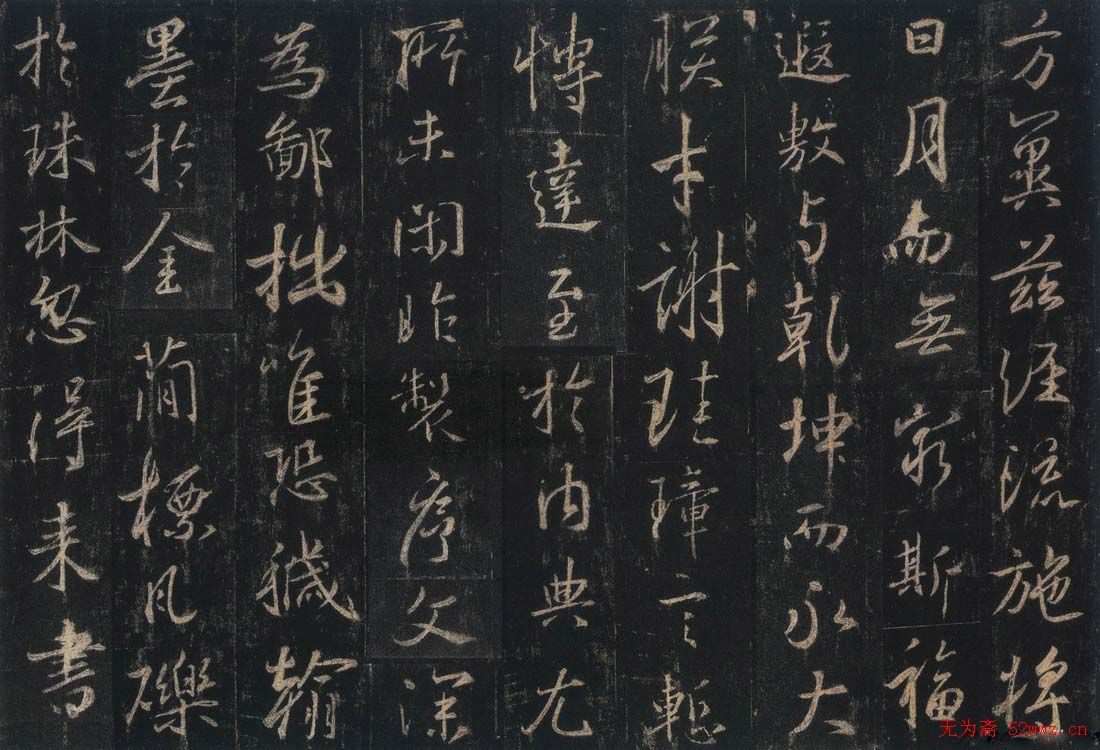 方冀茲經流施將
日月而無窮斯福
遐敷与乾坤而永大
朕才謝珪璋言慙
博達至於內典尤
所未閑昨製序文深
為鄙拙唯恐穢翰
墨於金簡標瓦礫
於珠林忽得来書
无为斋 52wwz.cn